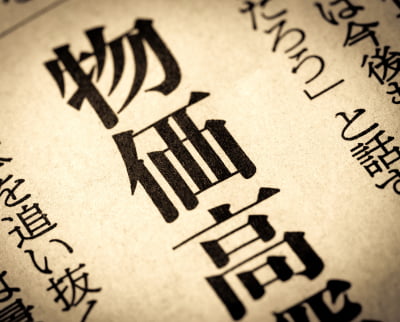 は今後
だろう」と話
物価高
を追い抜